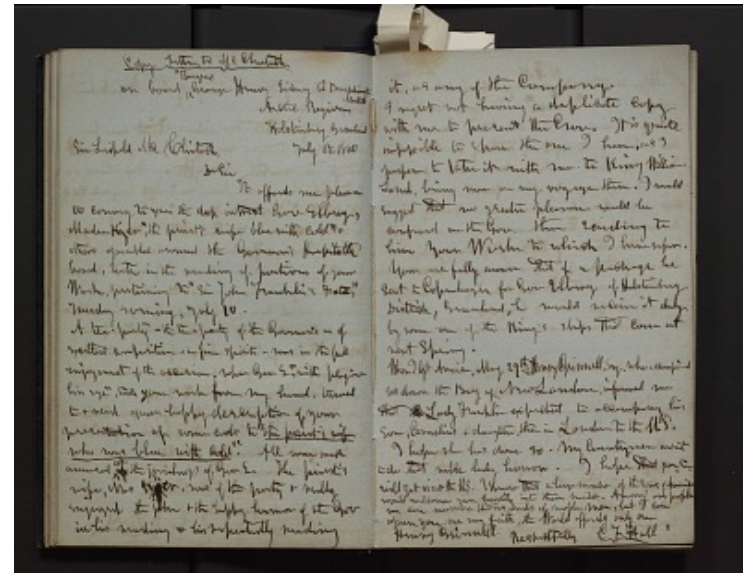 Copy Letter to McClintock
on board "George Henry" Sidney O. Budington
Arctic Regions
Holsteinborg Greenland
Sir Leopold McClintock July 18 1860
D Sir
It affords me pleasure
to convey to you the deep interest Gov. Elberg,
the priest's wife blue with cold &
others around the Governor's hospitable
board, took in the reading of portions of your
Work, pertaining to "Sir John Franklin's Fate,"
Tuesday evening, July 10.
A tea-party - the party of the Governor's is of
composition in fine spirits - was in the full
enjoyment of the occasion, when Gov E. with
his eye, took your work from my hand, turned
to & read your happy description of your
presentation of some coals to "the priest's wife
who was blue with cold". All were much
amused of the Gov. E. The priest's
wife, was one of the party & really
enjoyed the joke & the happy humor of the Gov
in his reading & his repeatedly reading
it, as any of the Company.
I regret not having a duplicate copy
with me to present the Gov. It is quite
impossible to spare the one I have, as I
purpose to take it with me to King William
Land, being now on my voyage there. I would
suggest that no greater pleasure could be
conferred on the Gov. than sending to
him Your Work to which I have refer.
You are fully aware that if a package be
sent to Copenhagen for Gov Elberg of Holsteinborg
District, Greenland, he would receive it
by some one of the King's ships that come out
next Spring.
May 29th Henry Grinnell, esq, who accompanied
us down the Bay of New London, informed me
Lady Franklin expected to accompany his
Son, Cornelius & daughter then in London to the U.S.
I hope she has done so. My Countrymen
to do that noble lady honor. I hope that you
will yet visit the U.S. a large number of
would welcome you in their midst. Among our people
we are thousands of noble men, but I can
assure you, on my faith, the World affords only one
Henry Grinnell. Respectfully C. F. Hall